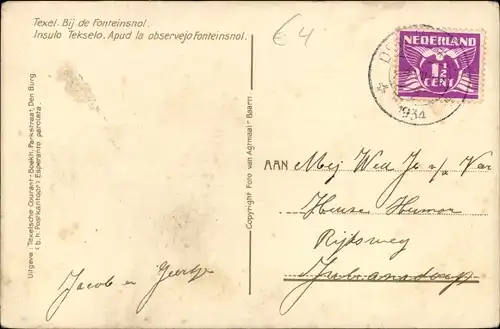 Texel. Bij de Fonteinsnol.
Insulo Tekselo. Apud la observejo Fonteinsnol.
€4
NEDERLAND
1½
CENT
1934
Uitgave: Texelsche Courant - Boekh. Parkstraat, Den Burg.
(b.h. Postkantoor) Esperanto parolata.
Copyright Foto van Agtmaal - Baarn
AAN
Mej Wed
Rijksweg
Julianadorp
Jacob en Geertje